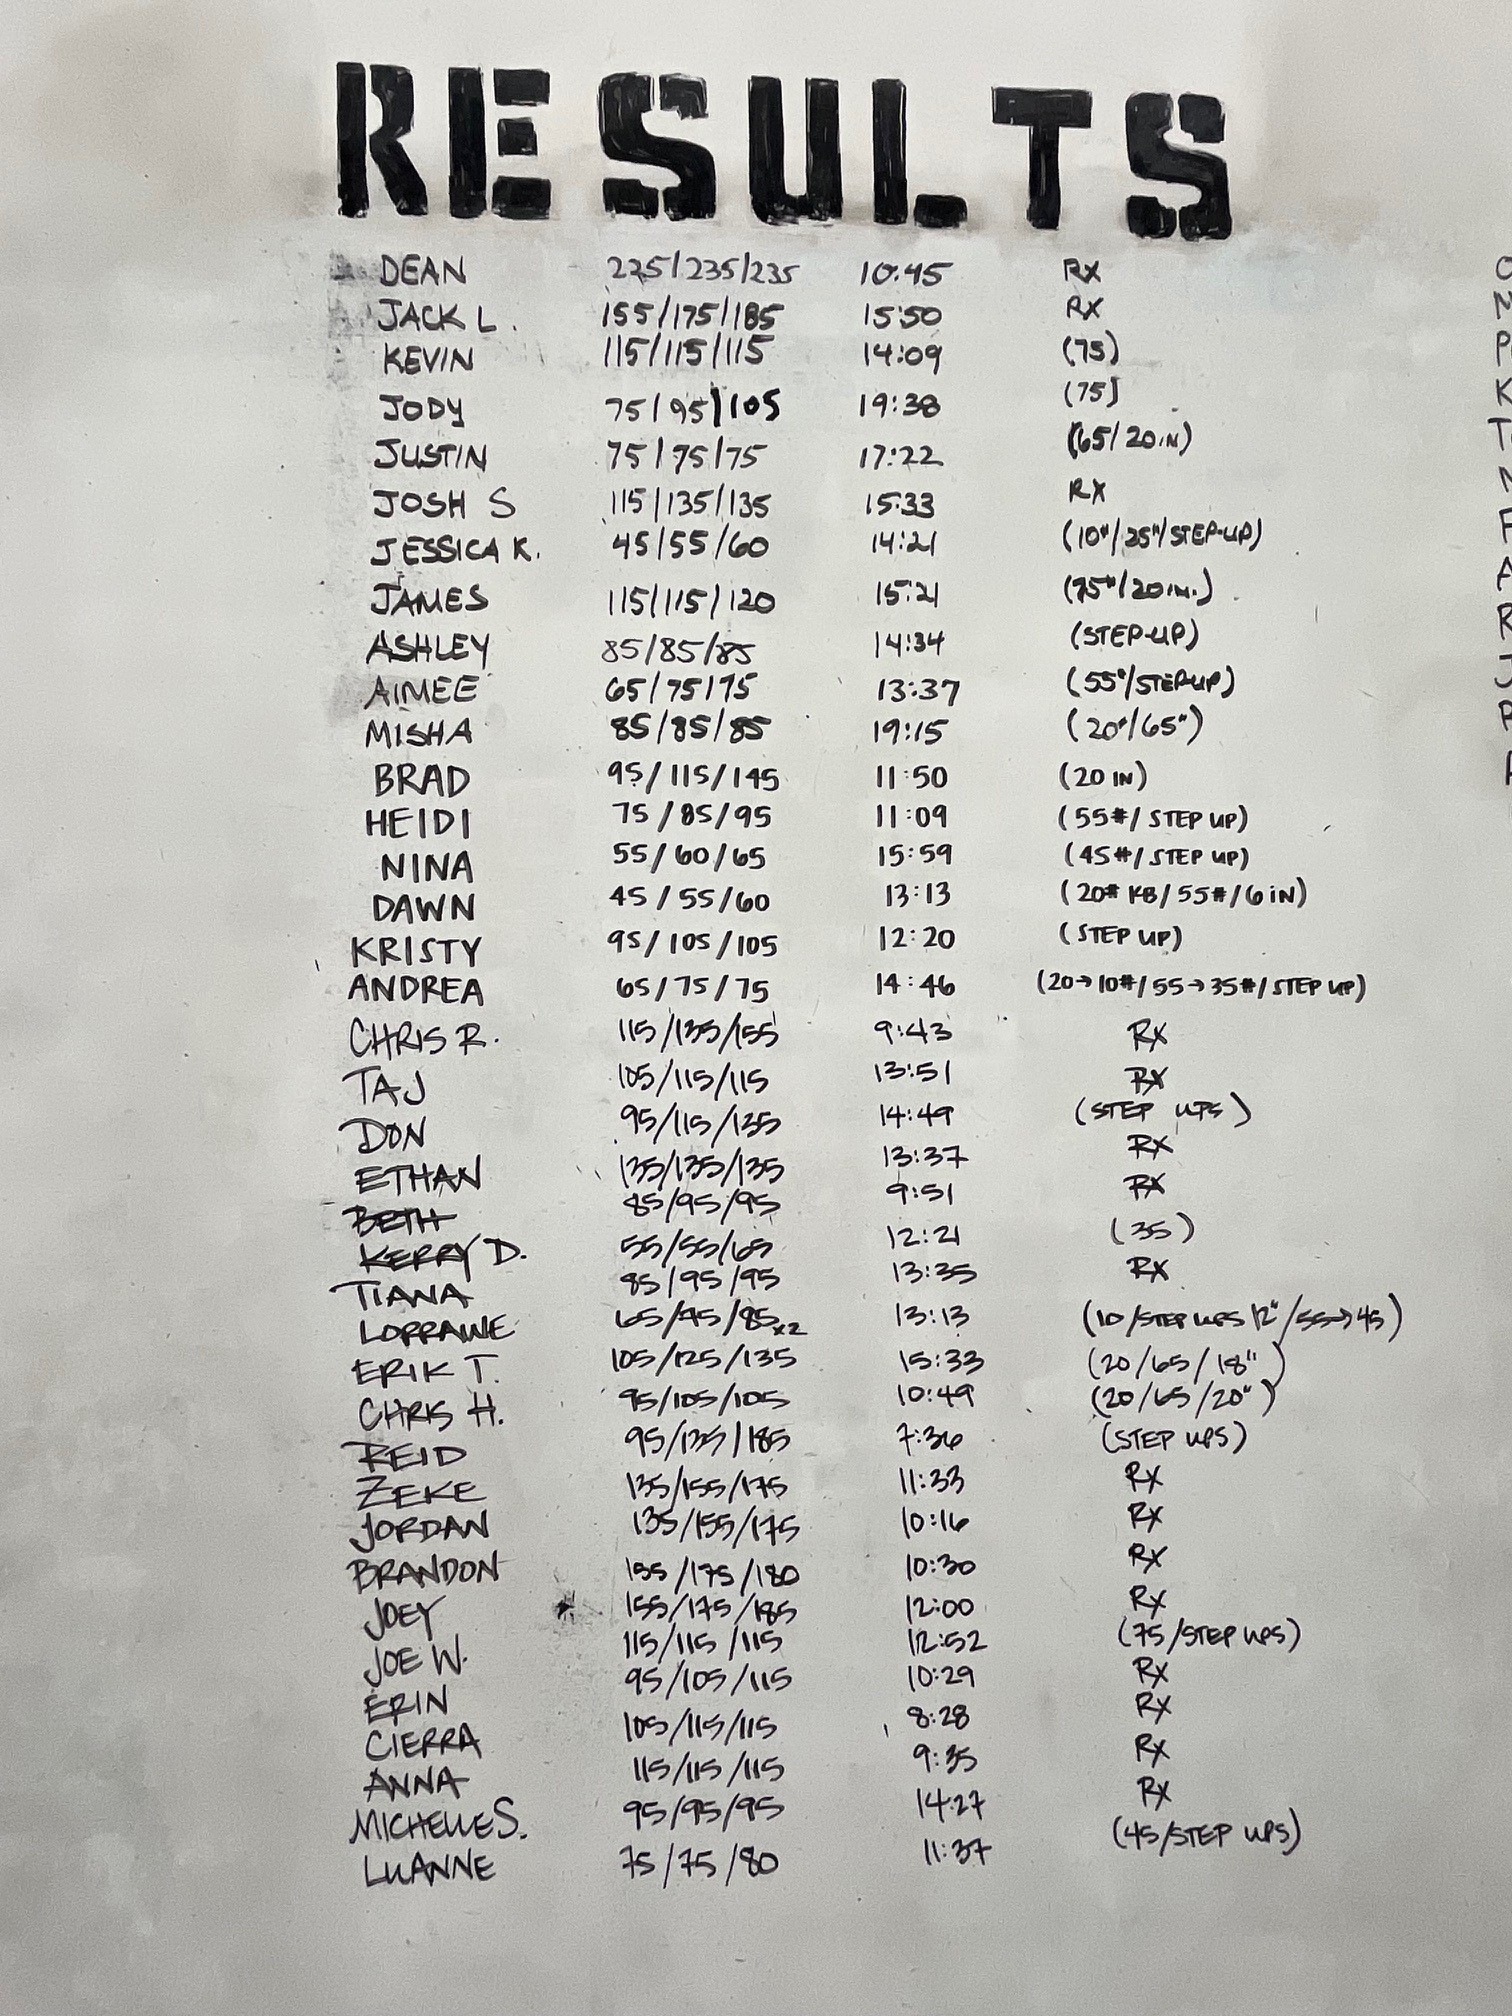 RESULTS
DEAN 225/235/235 10:45 RX
JACK L. 155/175/185 15:50 RX
KEVIN 115/115/115 14:09 (75)
JODY 75/95/105 19:38 (75)
JUSTIN 75/75/75 17:22 (65/20IN)
JOSH S 115/135/135 15:33 RX
JESSICA K. 45/55/60 14:21 (10#/35#/STEP-UP)
JAMES 115/115/120 15:21 (75#/20IN.)
ASHLEY 85/85/85 14:34 (STEP-UP)
AIMEE 65/75/75 13:37 (55#/STEP-UP)
MISHA 85/85/85 19:15 (20#/65#)
BRAD 95/115/145 11:50 (20 IN)
HEIDI 75/85/95 11:09 (55#/STEP UP)
NINA 55/60/65 15:59 (45#/STEP UP)
DAWN 45/55/60 13:13 (20# KB/55#/6 IN)
KRISTY 95/105/105 12:20 (STEP UP)
ANDREA 65/75/75 14:46 (20→10#/55→35#/STEP UP)
CHRIS R. 115/135/155 9:43 RX
TAJ 105/115/115 13:51 RX
DON 95/115/135 14:49 (STEP UPS)
ETHAN 135/135/135 13:37 RX
BETH 85/95/95 9:51 RX
KERRY D. 55/55/65 12:21 (35)
TIANA 85/95/95 13:35 RX
LORRAINE 65/75/85 x2 13:13 (10/STEP UPS 12"/55→45)
ERIK T. 105/125/135 15:33 (20/65/18")
CHRIS H. 95/105/105 10:49 (20/65/20")
REID 95/135/185 7:36 (STEP UPS)
ZEKE 135/155/175 11:33 RX
JORDAN 135/155/175 10:16 RX
BRANDON 155/175/180 10:30 RX
JOEY 155/175/185 12:00 RX
JOE W. 115/115/115 12:52 (75/STEP UPS)
ERIN 95/105/115 10:29 RX
CIERRA 105/115/115 8:28 RX
ANNA 115/115/115 9:35 RX
MICHELLE S. 95/95/95 14:27 RX
LUANNE 75/75/80 11:37 (45/STEP UPS)